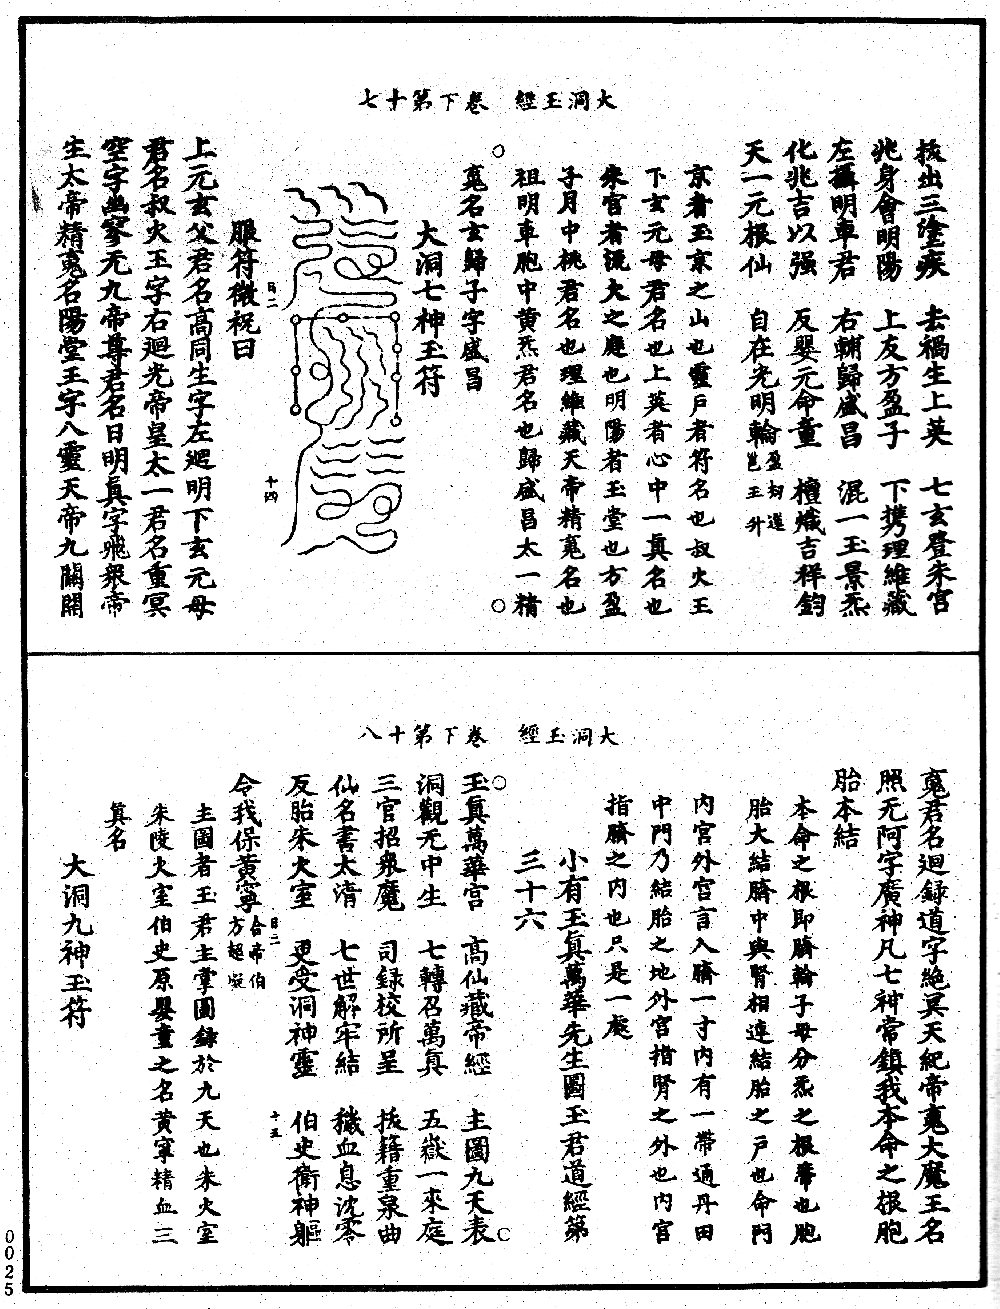 大洞玉經　卷下第十七
拔出三塗疾　去禍生上英　七玄登朱宮
兆身會明陽　上友方盈子　下携理維藏
左攝明車君　右輔歸盛昌　混一玉景炁
化兆吉以强　反嬰元命童　檀熾吉祥鈞
天一元根仙　自在光明輪
京者玉京之山也靈戶者符名也叔火王
下玄元母君名也上英者心中一眞名也
朱宮者𣴑火之庭也明陽者玉堂也方盈
子月中桃君名也理維藏天帝精䰟名也
祖明車胞中黄炁君名也歸盛昌太一精
䰟名玄歸子字盛昌
大洞七神玉符
日二
十四
服符微祝曰
上元玄父君名高同生字左迴明下玄元母
君名叔火王字右迴光帝皇太一君名重冥
空字幽寥无九帝尊君名日明眞字飛衆帝
生太帝精䰟名陽堂王字八靈天帝九關開
大洞玉經　卷下第十八
䰟君名迴録道字絶冥天紀帝䰟大魔王名
照无阿字廣神凡七神常鎮我本命之根胞
胎本結
本命之根即臍輪子母分炁之根蔕也胞
胎大結臍中與腎相連結胎之戸也命門
内宮外宮言入臍一寸内有一帶通丹田
中門乃結胎之地外宮指腎之外也内宮
指臍之内也只是一處
小有玉眞萬華先生圖玉君道經第
三十六
玉眞萬華宮　高仙藏帝經　主圖九天表
洞觀无中生　七轉召萬眞　五嶽一來庭
三官招衆魔　司録校所呈　拔籍重泉曲
仙名書太清　七世解牢結　穢血息沈零
反胎朱火室　更受洞神靈　伯史衛神軀
令我保黄寧
日二
十五
主圖者玉君主掌圖録於九天也朱火室
朱陵火室伯史原嬰童之名黄寧精血三
眞名
大洞九神玉符
0025